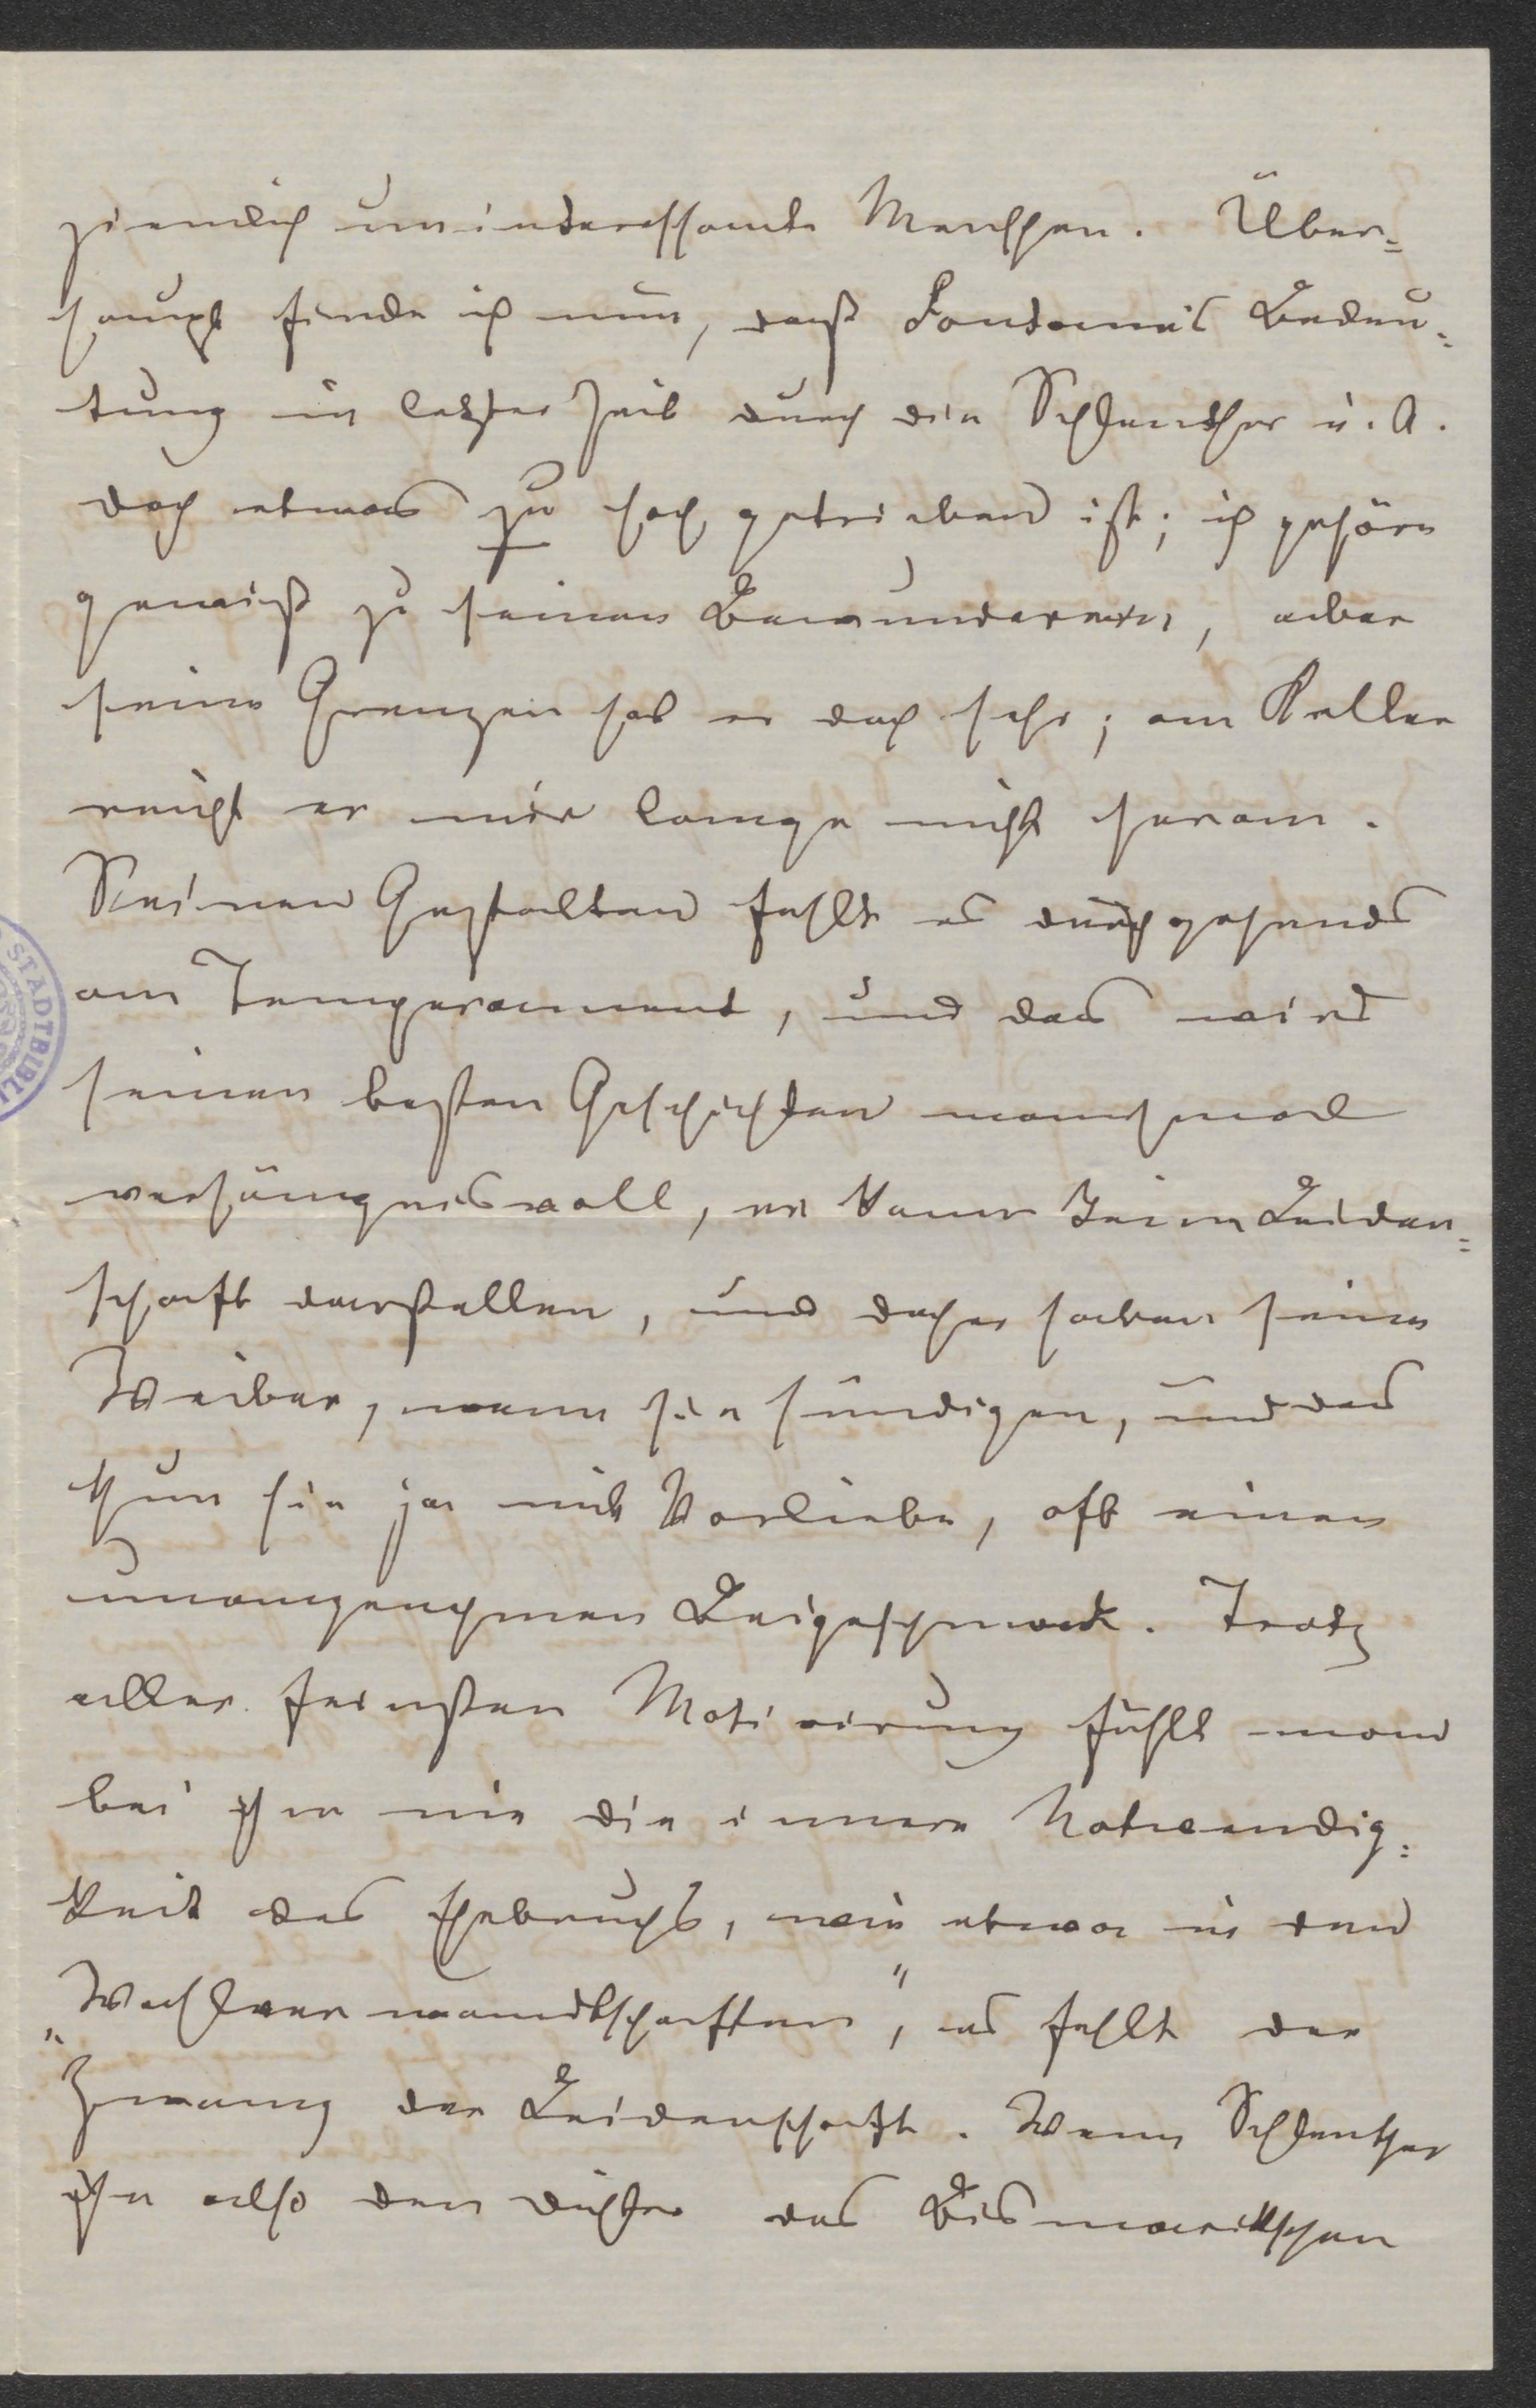 ziemlich uninteressante Menschen. Über=
haupt finde ich nun, daß Fontane's Bedeu=
tung in letzter Zeit durch die Schlenther u. A.
doch etwas zu hoch getrieben ist; ich gehöre
gewiß zu seinen Bewunderern, aber
seine Grenzen hat er doch sehr; an Keller
reicht er mir lange nicht heran.
Seinen Gestalten fehlt es durchgehends
an Temperament, und das wird
seinen besten Geschichten manchmal
verhängnisvoll, er kann keine Leiden=
schaft darstellen, und daher haben seine
Weiber, wenn sie sündigen, und das
thun sie ja mit Vorliebe, oft einen
unangenehmen Beigeschmack. Trotz
aller feinsten Motivirung fühlt man
bei ihm nie die innere Notwendig=
keit des Ehebruchs, wie etwa in den
„Wahlverwandtschaften", es fehlt der
Zwang der Leidenschaft. Wenn Schlenther
ihn also den Dichter des Bismarckschen
STADTBIBLI